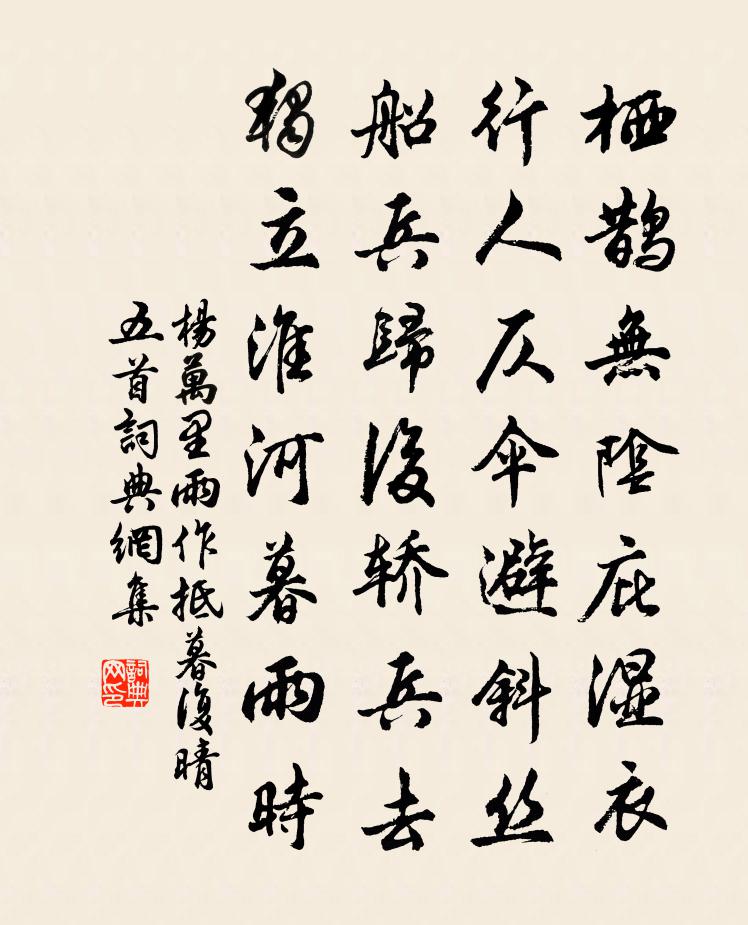 栖鹊無陰庇湿衣
行人仄伞避斜丝
船兵歸後轿兵去
獨立淮河暮雨時
楊萬里雨作抵暮復晴
五首詞典網集
詞典网印